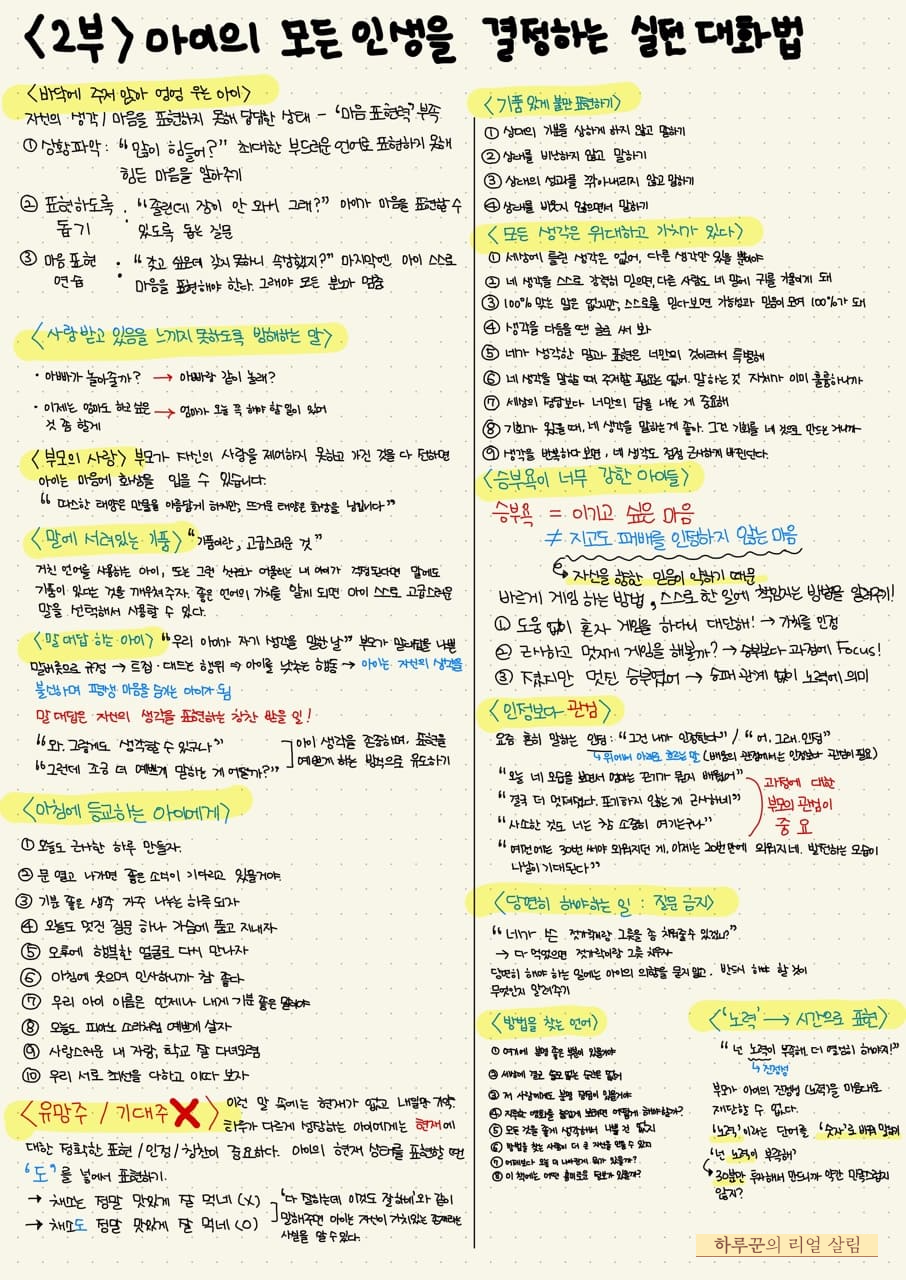 <2부> 아이의 모든 인생을 결정하는 실전 대화법
<바닥에 주저 앉아 엉엉 우는 아이>
자신의 생각/마음을 표현하지 못해 답답한 상태 - "마음 표현력" 부족
① 상황파악 : "많이 힘들어?" 최대한 부드러운 언어로 표현하지 못해
힘든 마음을 알아주기
② 표현하도록 : "졸린데 잠이 안 와서 그래?" 아이가 마음을 표현할 수
돕기 있도록 돕는 질문
③ 마음 표현 : "갖고 싶은데 갖지 못하니 속상했지?" 마지막엔 아이 스스로
연습 마음을 표현해야 한다. 그래야 모든 분노가 멈춤
<사랑 받고 있음을 느끼지 못하도록 방해하는 말>
· 아빠가 놀아줄까? → 아빠랑 같이 놀래?
· 이제는 엄마도 하고 싶은 → 엄마가 오늘 꼭 해야 할 일이 있어
것 좀 할게
<부모의 사랑> 부모가 자신의 사랑을 제어하지 못하고 가진 것을 다 전하면
아이는 마음에 화상을 입을 수 있습니다.
"따스한 태양은 만물을 아름답게 하지만, 뜨거운 태양은 화상을 남깁니다"
<말에 서려있는 기품> "기품이란, 고급스러운 것"
거친 언어를 사용하는 아이, 또는 그런 친구와 어울리는 내 아이가 걱정된다면 말에도
기품이 있다는 것을 깨우쳐주자. 좋은 언어의 가치를 알게 되면 아이 스스로 고급스러운
말을 선택해서 사용할 수 있다.
<말 대답 하는 아이> "우리 아이가 자기 생각을 말한 날" 부모가 말대답을 나쁜
말버릇으로 규정 → 트집·대드는 행위 ⇒ 아이를 낮추는 행동 → 아이는 자신의 생각을
불신하며 평생 마음을 숨기는 아이가 됨
말 대답은 자신의 생각을 표현하는 칭찬 받을 일!
"와, 그렇게도 생각할 수 있구나" 아이 생각을 존중하며, 표현을
"그런데 조금 더 예쁘게 말하는 게 어떨까?" 예쁘게 하는 방법으로 유도하기
<아침에 등교하는 아이에게>
① 오늘도 근사한 하루 만들자.
② 문 열고 나가면 좋은 소식이 기다리고 있을거야.
③ 기분 좋은 생각 자주 나누는 하루 되자
④ 오늘도 멋진 질문 하나 가슴에 품고 지내자
⑤ 오후에 행복한 얼굴로 다시 만나자
⑥ 아침에 웃으며 인사하니까 참 좋다
⑦ 우리 아이 이름은 언제나 내게 기분 좋은 말이야
⑧ 오늘도 피아노 소리처럼 예쁘게 살자
⑨ 사랑스러운 내 자랑, 학교 잘 다녀오렴
⑩ 우리 서로 최선을 다하고 이따 보자
<유망주 / 기대주 ❌> 이런 말 속에는 현재가 없고 내일만 가득.
하루가 다르게 성장하는 아이에게는 현재에
대한 정확한 표현/인정/칭찬이 중요하다. 아이의 현재 상태를 표현할 땐
'도'를 넣어서 표현하기.
→ 채소는 정말 맛있게 잘 먹네 (X) '다 잘하는데 이것도 잘하네'와 같이
→ 채소도 정말 맛있게 잘 먹네 (O) 말해주면 아이는 자신이 가치있는 존재라는
사실을 알 수 있다.
<기품 있게 불만 표현하기>
① 상대의 기분을 상하게 하지 않고 말하기
② 상대를 비난하지 않고 말하기
③ 상대의 성과를 깎아내리지 않고 말하기
④ 상대를 비웃지 않으면서 말하기
<모든 생각은 위대하고 가치가 있다>
① 세상에 틀린 생각은 없어, 다른 생각만 있을 뿐이야
② 네 생각을 스스로 강력히 믿으면, 다른 사람도 네 말에 귀를 기울이게 돼
③ 100% 맞는 말은 없지만, 스스로를 믿다보면 가능성과 믿음이 모여 100%가 돼
④ 생각을 다듬을 땐 글로 써 봐
⑤ 네가 생각한 말과 표현은 너만의 것이라서 특별해
⑥ 네 생각을 말할 때 주저할 필요는 없어. 말하는 것 자체가 이미 훌륭하니까
⑦ 세상의 정답보다 너만의 답을 내는 게 중요해
⑧ 기회가 왔을 때, 네 생각을 말하는 게 좋아. 그건 기회를 네 것으로 만드는 거니까
⑨ 생각을 반복하다 보면, 네 생각도 점점 근사하게 바뀐단다.
<승부욕이 너무 강한 아이들>
승부욕 = 이기고 싶은 마음
≠ 지고도 패배를 인정하지 않는 마음
↳ 자신을 향한 믿음이 약하기 때문
바르게 게임 하는 방법, 스스로 한 일에 책임지는 방법을 알려주기!
① 도움 없이 혼자 게임을 하다니 대단해! → 가치를 인정
② 근사하고 멋지게 게임을 해볼까? → 승부보다 과정에 Focus!
③ 졌지만 멋진 승부였어 → 승패 관계 없이 노력에 의미
<인정보다 관점>
요즘 흔히 말하는 인정 : "그건 내가 인정한다" / "어, 그래. 인정"
↳ 위에서 아래로 흐르는 말 (배움의 관점에서는 인정보다 관점이 필요)
"오늘 네 모습을 보면서 엄마는 끈기가 뭔지 배웠어"
"결국 더 멋져졌다. 포기하지 않는 게 근사하네"
"사소한 것도 너는 참 소중히 여기는구나"
과정에 대한
부모의 관점이
중요
"어떤 에는 30번 써야 외워지던 게, 이제는 20번 만에 외워지네. 발전하는 모습이
나날이 기대된다"
<당연히 해야하는 일 : 질문 금지>
"네가 쓴 젓가락이랑 그릇을 좀 치워줄 수 있겠니?"
→ 다 먹었으면 젓가락이랑 그릇 치우자
당연히 해야 하는 일에는 아이의 의향을 묻지 말고, 반드시 해야 할 것이
무엇인지 알려주기
<방법을 찾는 언어>
① 여기에 분명 좋은 부분이 있을거야
② 세상에 결코 쓸모 없는 순간은 없어
③ 저 사람에게도 분명 장점이 있을거야
④ 지루한 영화를 즐겁게 보려면 어떻게 해야할까?
⑤ 모든 것을 좋게 생각해서 나쁠 건 없지
⑥ 방법을 찾는 사람이 더 큰 자신을 만들 수 있지
⑦ 어제보다 오늘 더 나아진게 뭐가 있을까?
⑧ 이 책에는 어떤 흥미로운 정보가 있을까?
<'노력' → 시간으로 표현>
"넌 노력이 부족해. 더 열심히 해야지!"
↳ 진정성
부모가 아이의 진정성 (노력)을 마음대로
재단할 수 없다.
'노력'이라는 단어를 '숫자'로 바꿔 말하기
'넌 노력이 부족해?
↳ 30분만 투자해서 만드니까 약간 만족스럽지
않지?
하루꾼의 리얼 살림